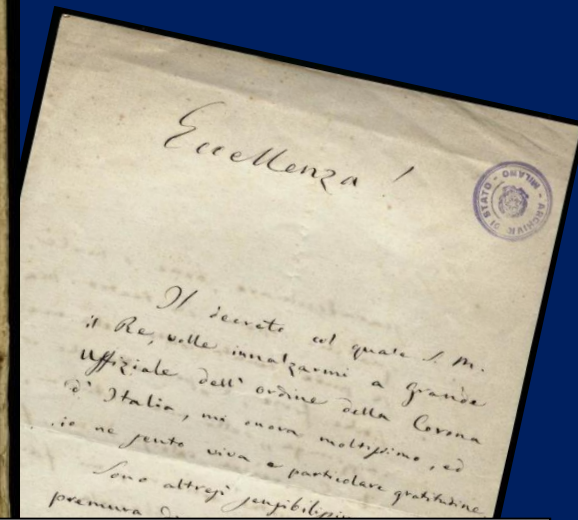 Eccellenza!
ARCHIVIO DI STATO - MILANO -
Il decreto col quale S. M.
il Re, volle innalzarmi a grande
Uffiziale dell' ordine della Corona
d' Italia, mi onora moltissimo, ed
io ne sento viva e particolare gratitudine
Sono altresì
premura